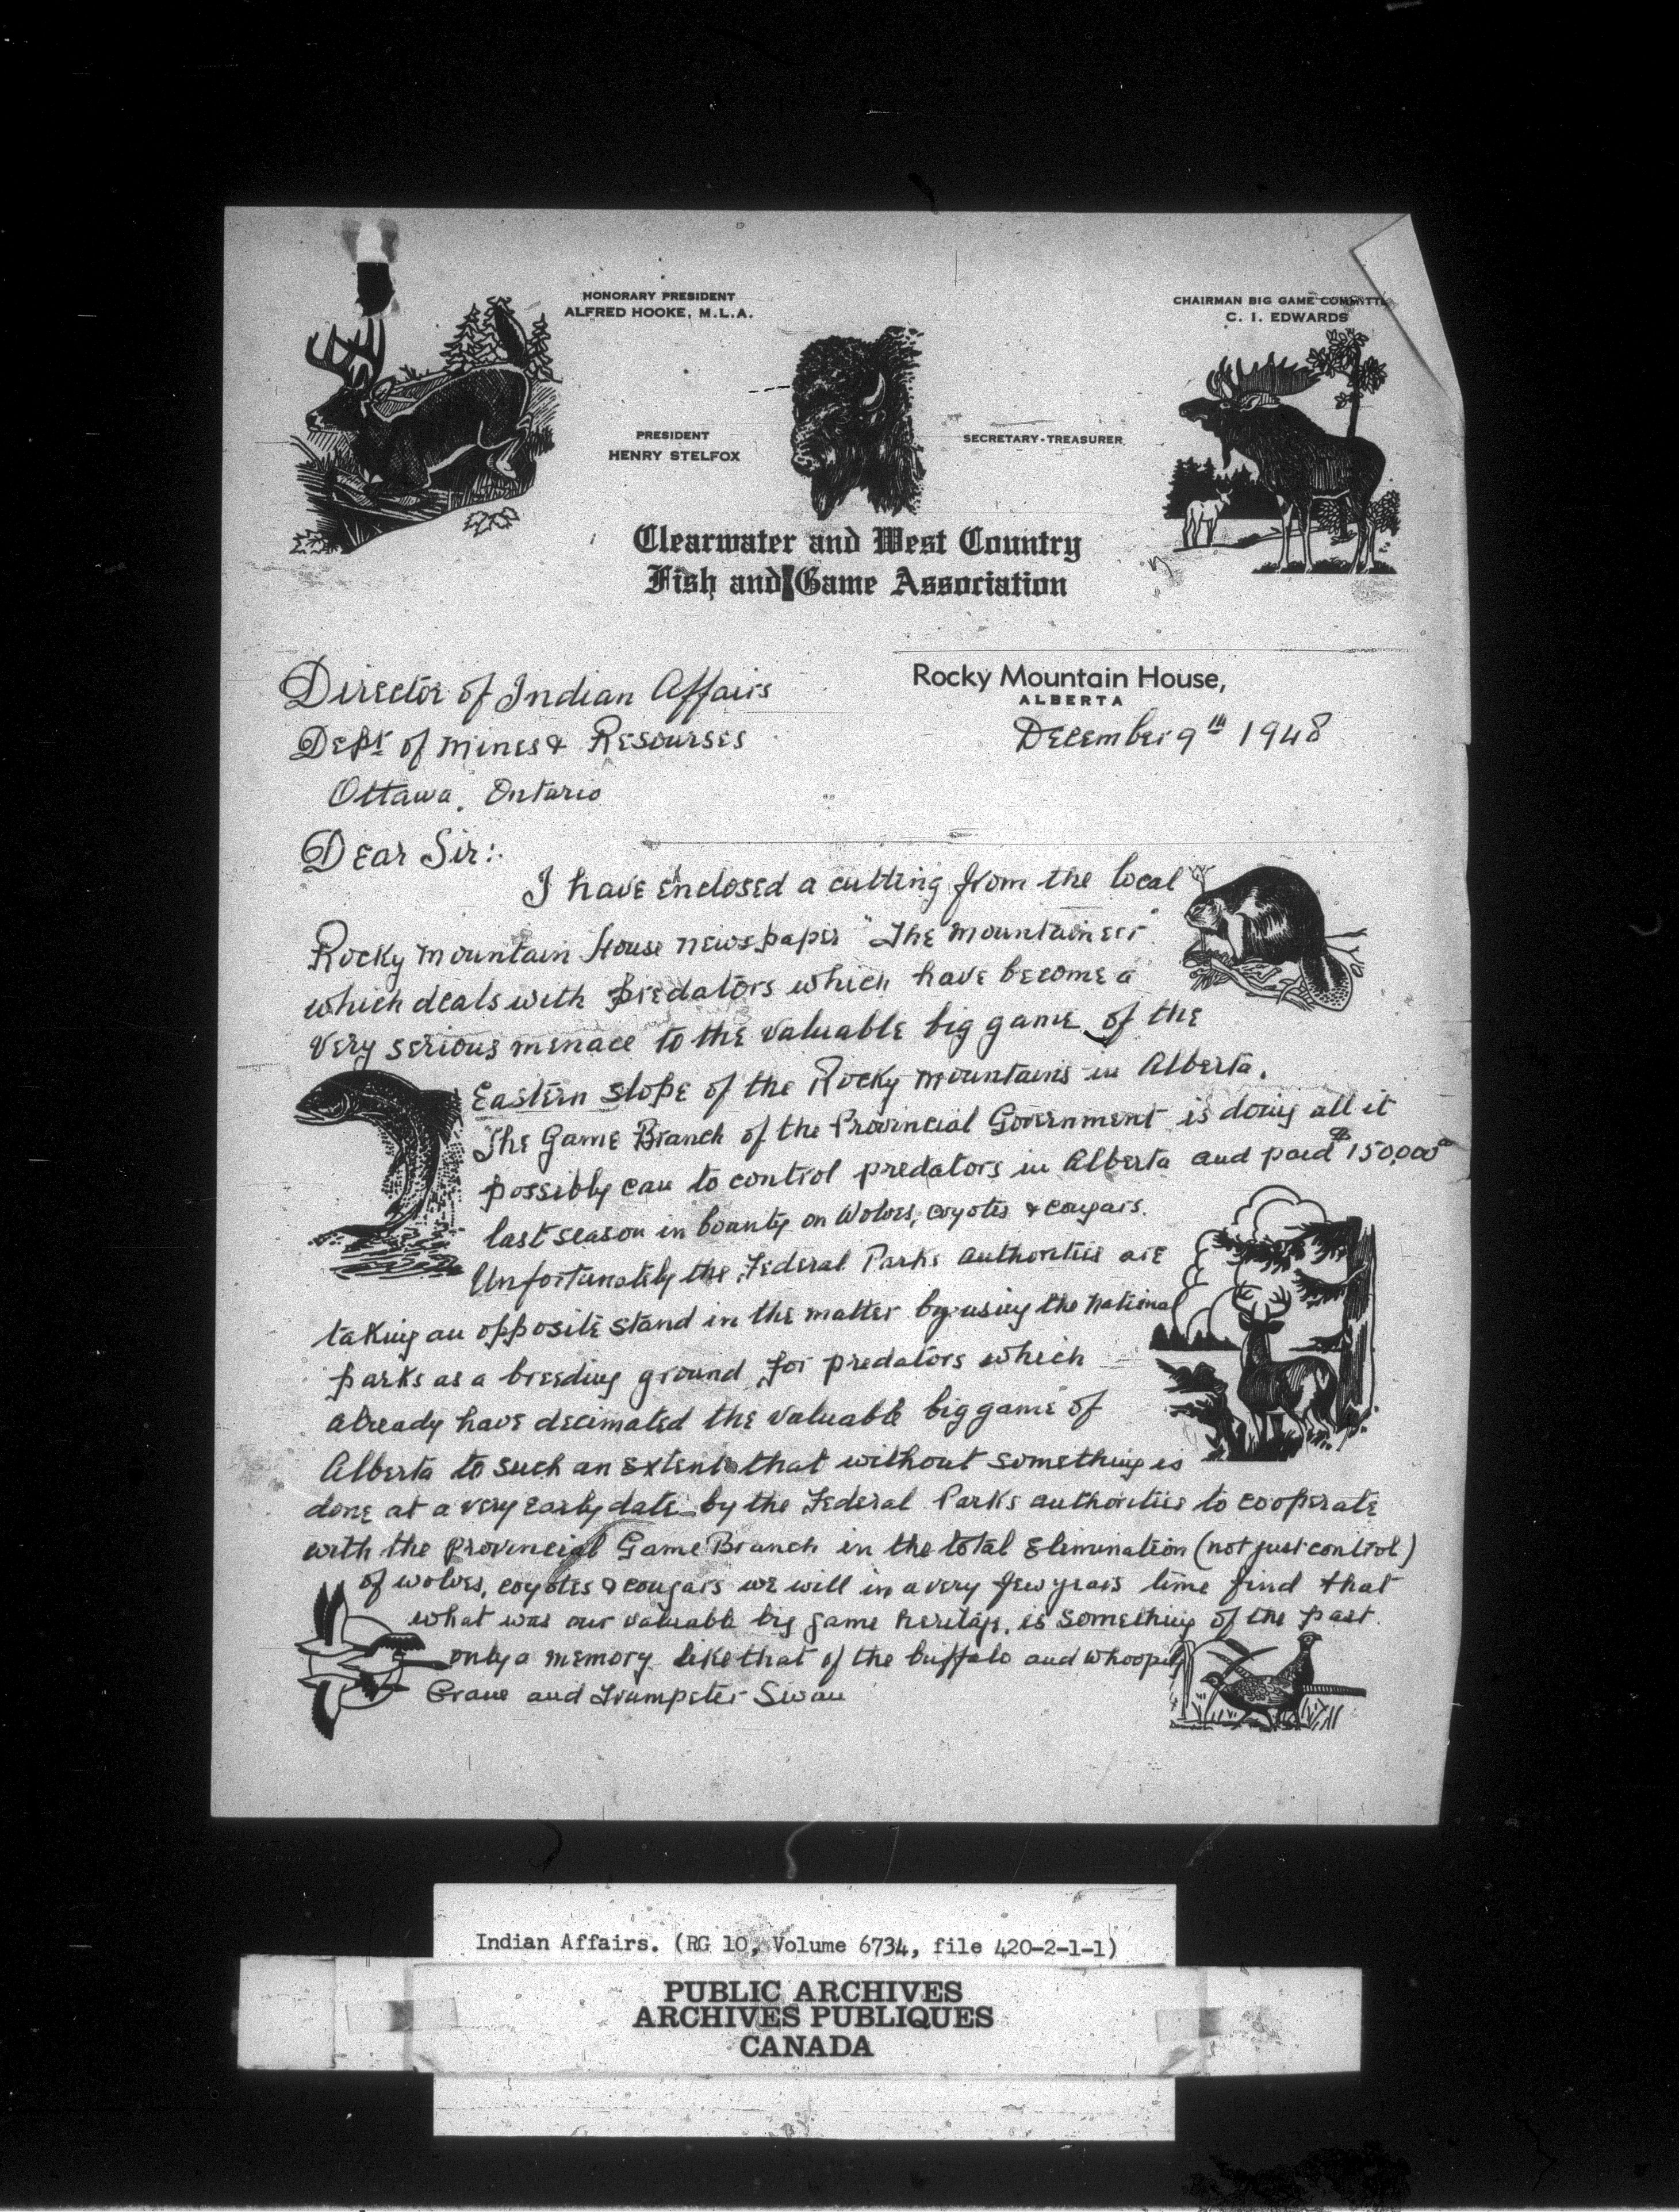 HONORARY PRESIDENT
ALFRED HOOKE, M.L.A.
CHAIRMAN BIG GAME COMMITTE
C. I. EDWARDS
PRESIDENT
HENRY STELFOX
SECRETARY-TREASURER
Clearwater and West Country
Fish and Game Association
Rocky Mountain House,
ALBERTA
December 9th 1948
Director of Indian Affairs
Dept of Mines & Resourses
Ottawa, Ontario
Dear Sir:.
I have enclosed a cutting from the local
Rocky Mountain House newspaper "The Mountaineer"
which deals with predators which have become a
very serious menace to the valuable big game of the
Eastern slope of the Rocky Mountains in Alberta.
The Game Branch of the Provincial Government is doing all it
possibly can to control predators in Alberta and paid $150,000
last season in bounty on Wolves, coyotes & cougars.
Unfortunately the Federal Parks authorities are
taking an opposite stand in the matter by using the National
parks as a breeding ground for predators which
already have decimated the valuable big game of
Alberta to such an extent that without something is
done at a very early date by the Federal Parks authorities to cooperate
with the Provincial Game Branch in the total Elimination (not just control)
of wolves, coyotes & cougars we will in a very few years time find that
what was our valuable big game heritage, is something of the past.
only a memory like that of the buffalo and whooping
Crane and Trumpeter Swan
Indian Affairs. (RG 10, Volume 6734, file 420-2-1-1)
PUBLIC ARCHIVES
ARCHIVES PUBLIQUES
CANADA